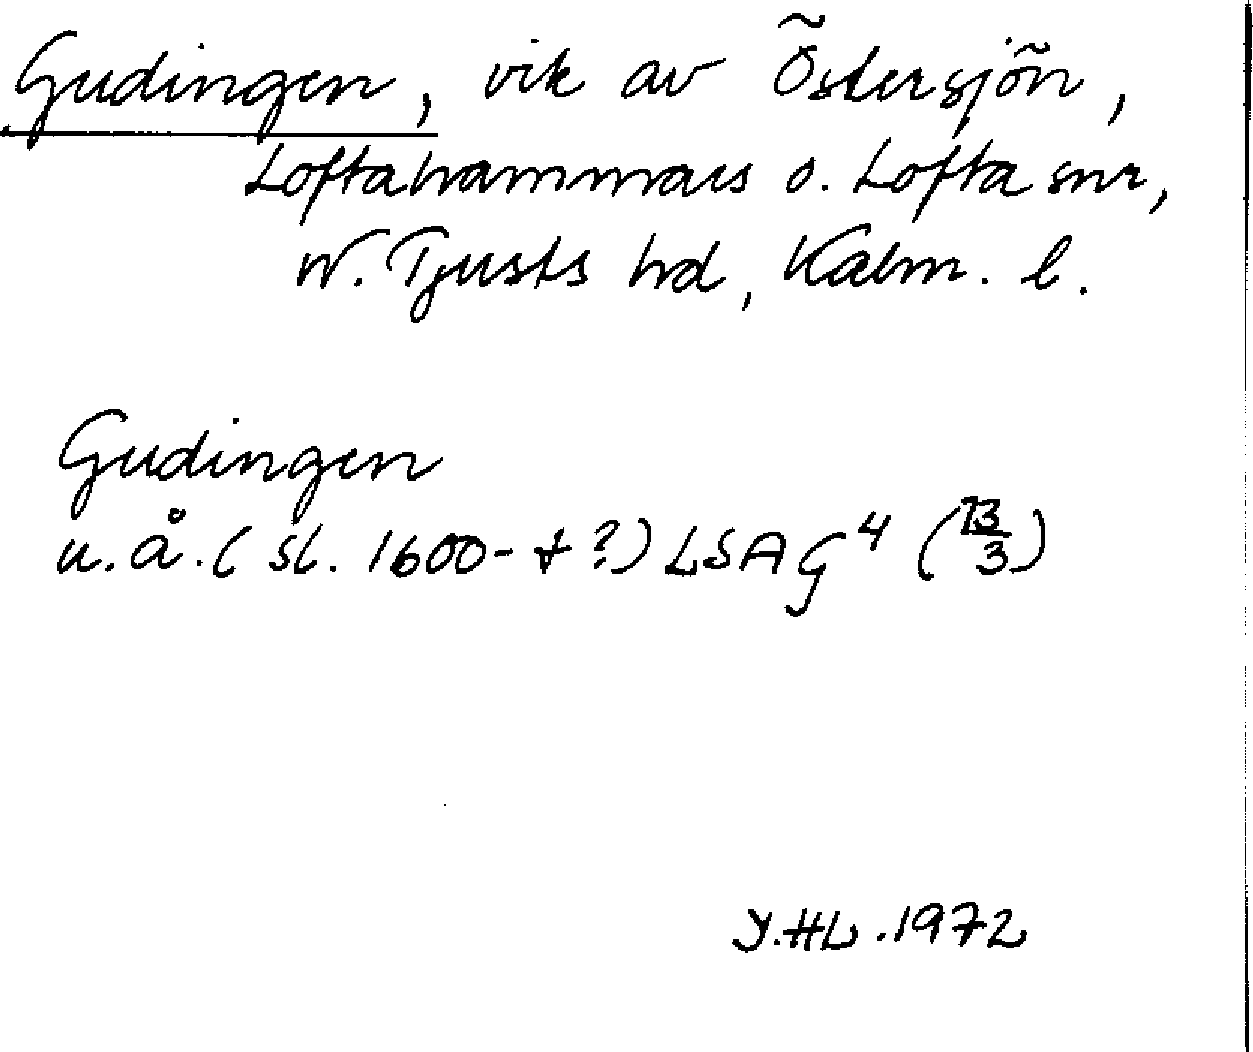 Gudingen, vik av Östersjön,
Loftahammars o. Lofta snr,
N. Tjusts hd, Kalm. l.
Gudingen
u.å. (sl. 1600-t?) LSA G4 (73/3)
Y.HL. 1972